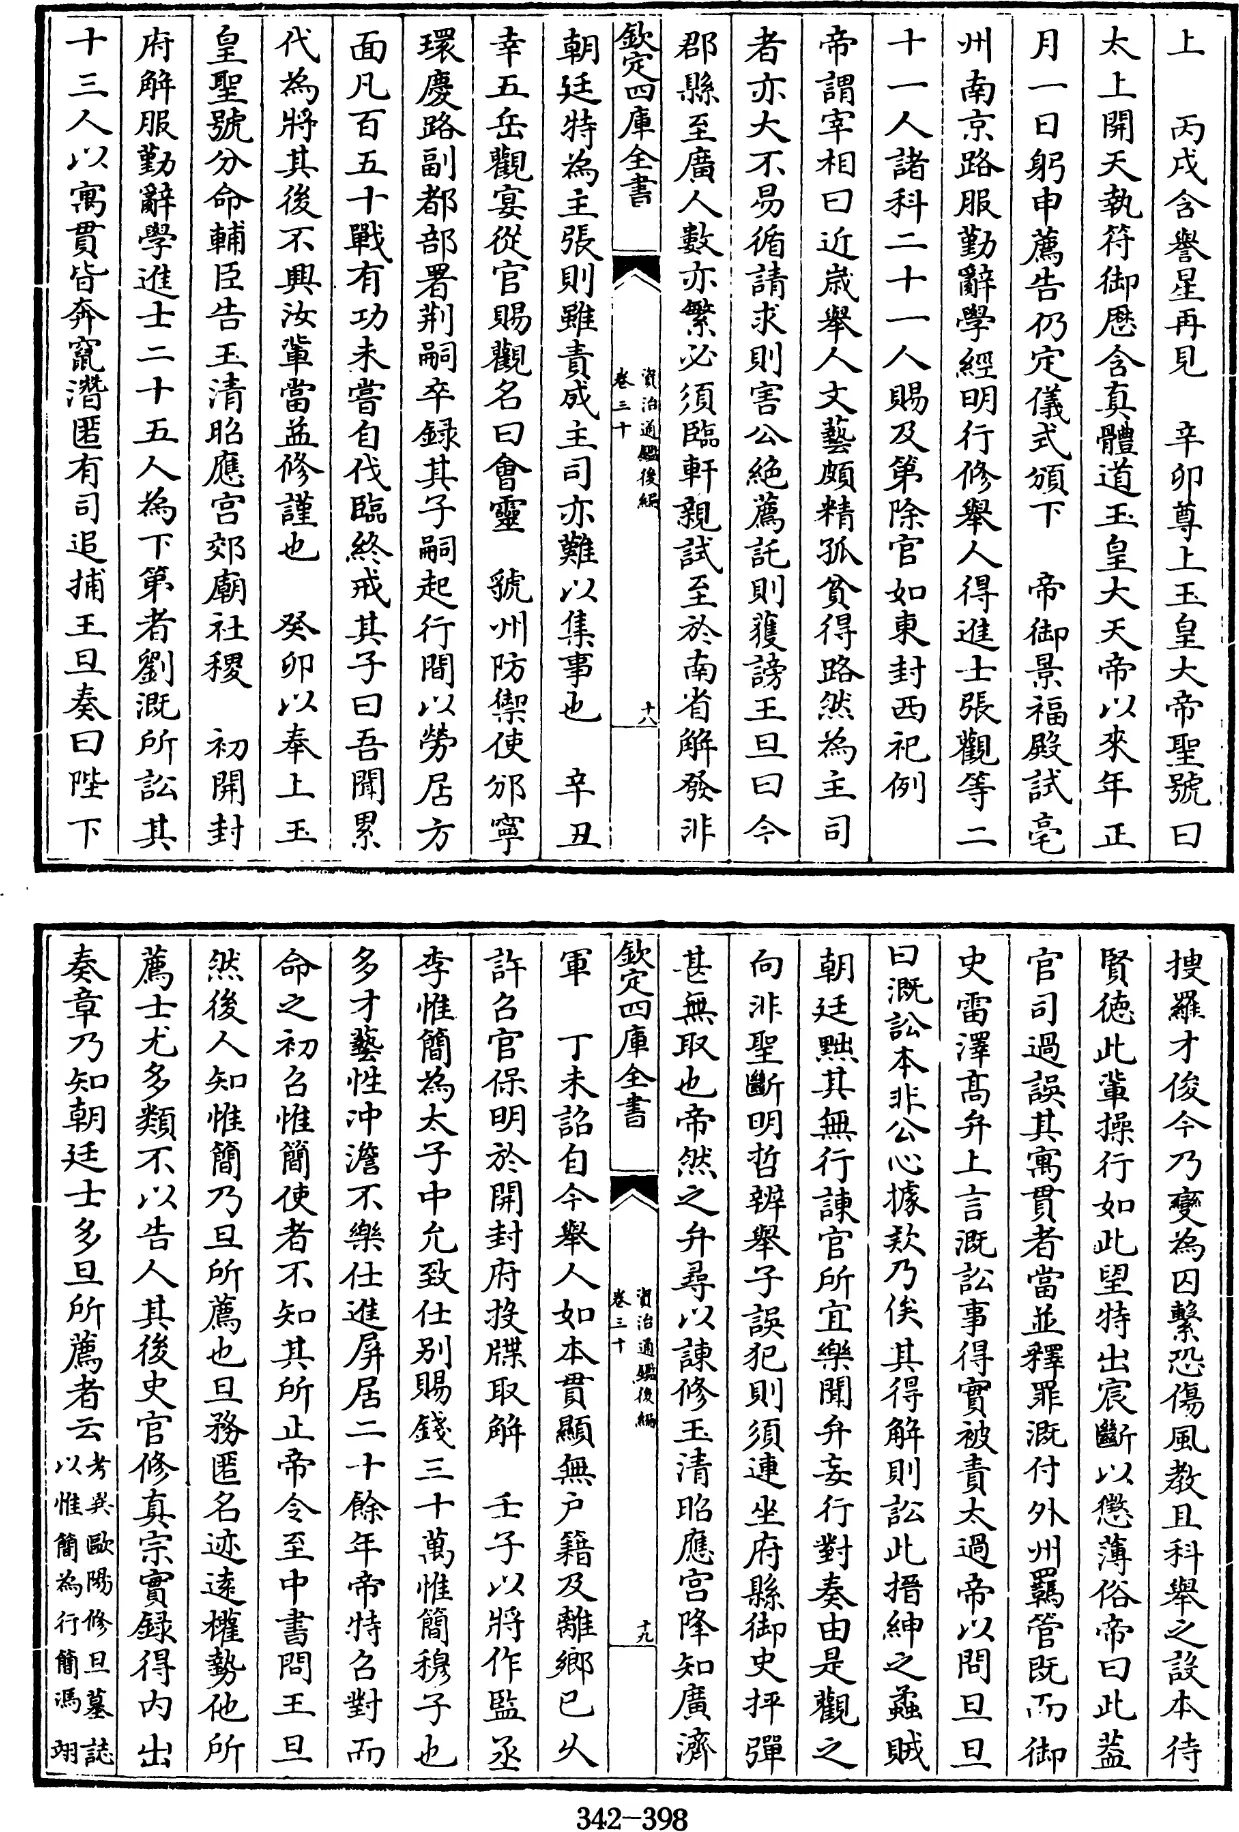 上　丙戌含譽星再見　辛卯尊上玉皇大帝聖號曰
太上開天執符御歷含真體道玉皇大天帝以來年正
月一日躬申薦告仍定儀式頒下　帝御景福殿試亳
州南京路服勤辭學經明行修舉人得進士張觀等二
十一人諸科二十一人賜及第除官如東封西祀例
帝謂宰相曰近歲舉人文藝頗精孤貧得路然為主司
者亦大不易循請求則害公絶薦託則獲謗王旦曰今
郡縣至廣人數亦繁必須臨軒親試至於南省解發非
欽定四庫全書
資治通鑑後編
卷三十
十八
朝廷特為主張則雖責成主司亦難以集事也　辛丑
幸五岳觀宴從官賜觀名曰會靈　虢州防禦使邠寧
環慶路副都部署荆嗣卒録其子嗣起行間以勞居方
面凡百五十戰有功未嘗自伐臨終戒其子曰吾聞累
代為將其後不興汝輩當益修謹也　癸卯以奉上玉
皇聖號分命輔臣告玉清昭應宫郊廟社稷　初開封
府解服勤辭學進士二十五人為下第者劉溉所訟其
十三人以寓貫皆奔竄潛匿有司追捕王旦奏曰陛下
搜羅才俊今乃變為囚繫恐傷風教且科舉之設本待
賢德此輩操行如此望特出宸斷以懲薄俗帝曰此蓋
官司過誤其寓貫者當並釋罪溉付外州羈管既而御
史雷澤髙弁上言溉訟事得實被責太過帝以問旦旦
曰溉訟本非公心據欵乃俟其得解則訟此搢紳之蟊賊
朝廷黜其無行諫官所宜樂聞弁妄行對奏由是觀之
向非聖斷明哲辨舉子誤犯則須連坐府縣御史抨彈
甚無取也帝然之弁尋以諫修玉清昭應宫降知廣濟
欽定四庫全書
資治通鑑後編
卷三十
十九
軍　丁未詔自今舉人如本貫顯無户籍及離鄉已久
許召官保明於開封府投牒取解　壬子以將作監丞
李惟簡為太子中允致仕别賜錢三十萬惟簡穆子也
多才藝性沖澹不樂仕進屏居二十餘年帝特召對而
命之初召惟簡使者不知其所止帝令至中書問王旦
然後人知惟簡乃旦所薦也旦務匿名迹遠權勢他所
薦士尤多類不以告人其後史官修真宗實録得内出
奏章乃知朝廷士多旦所薦者云考異歐陽修旦墓誌
以惟簡為行簡馮翊
342-398